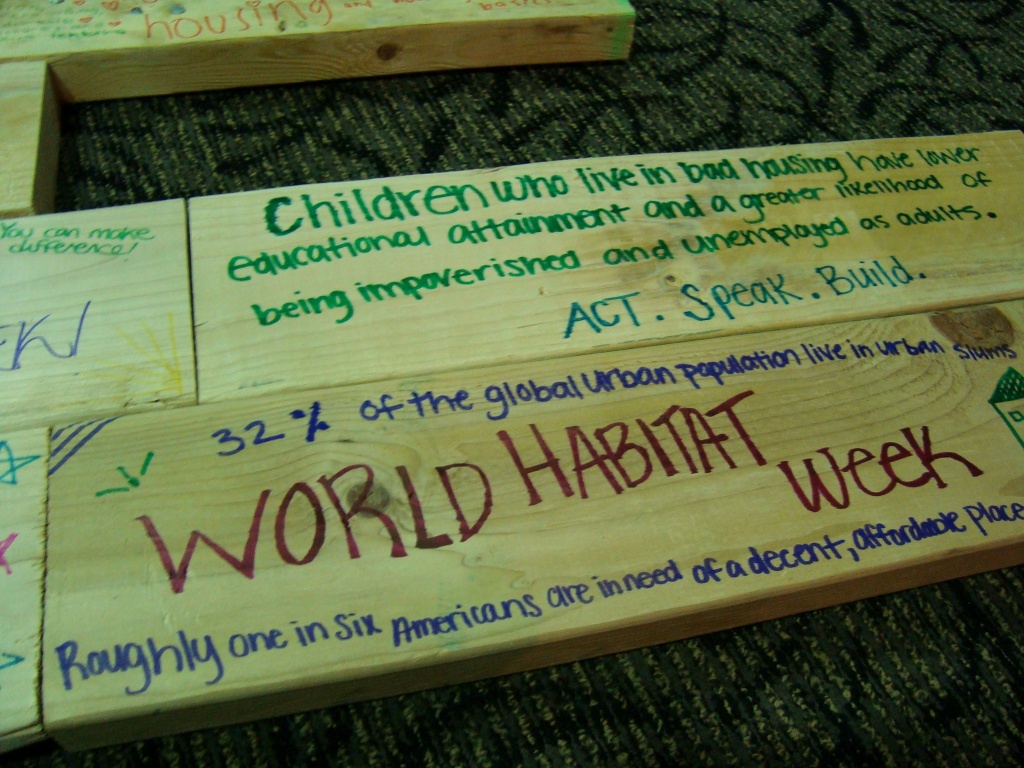 housing
You can make
difference!
Children who live in bad housing have lower
educational attainment and a greater likelihood of
being impoverished and unemployed as adults.
ACT. Speak. Build.
32% of the global urban population live in urban slums
WORLD HABITAT Week
Roughly one in six Americans are in need of a decent, affordable place